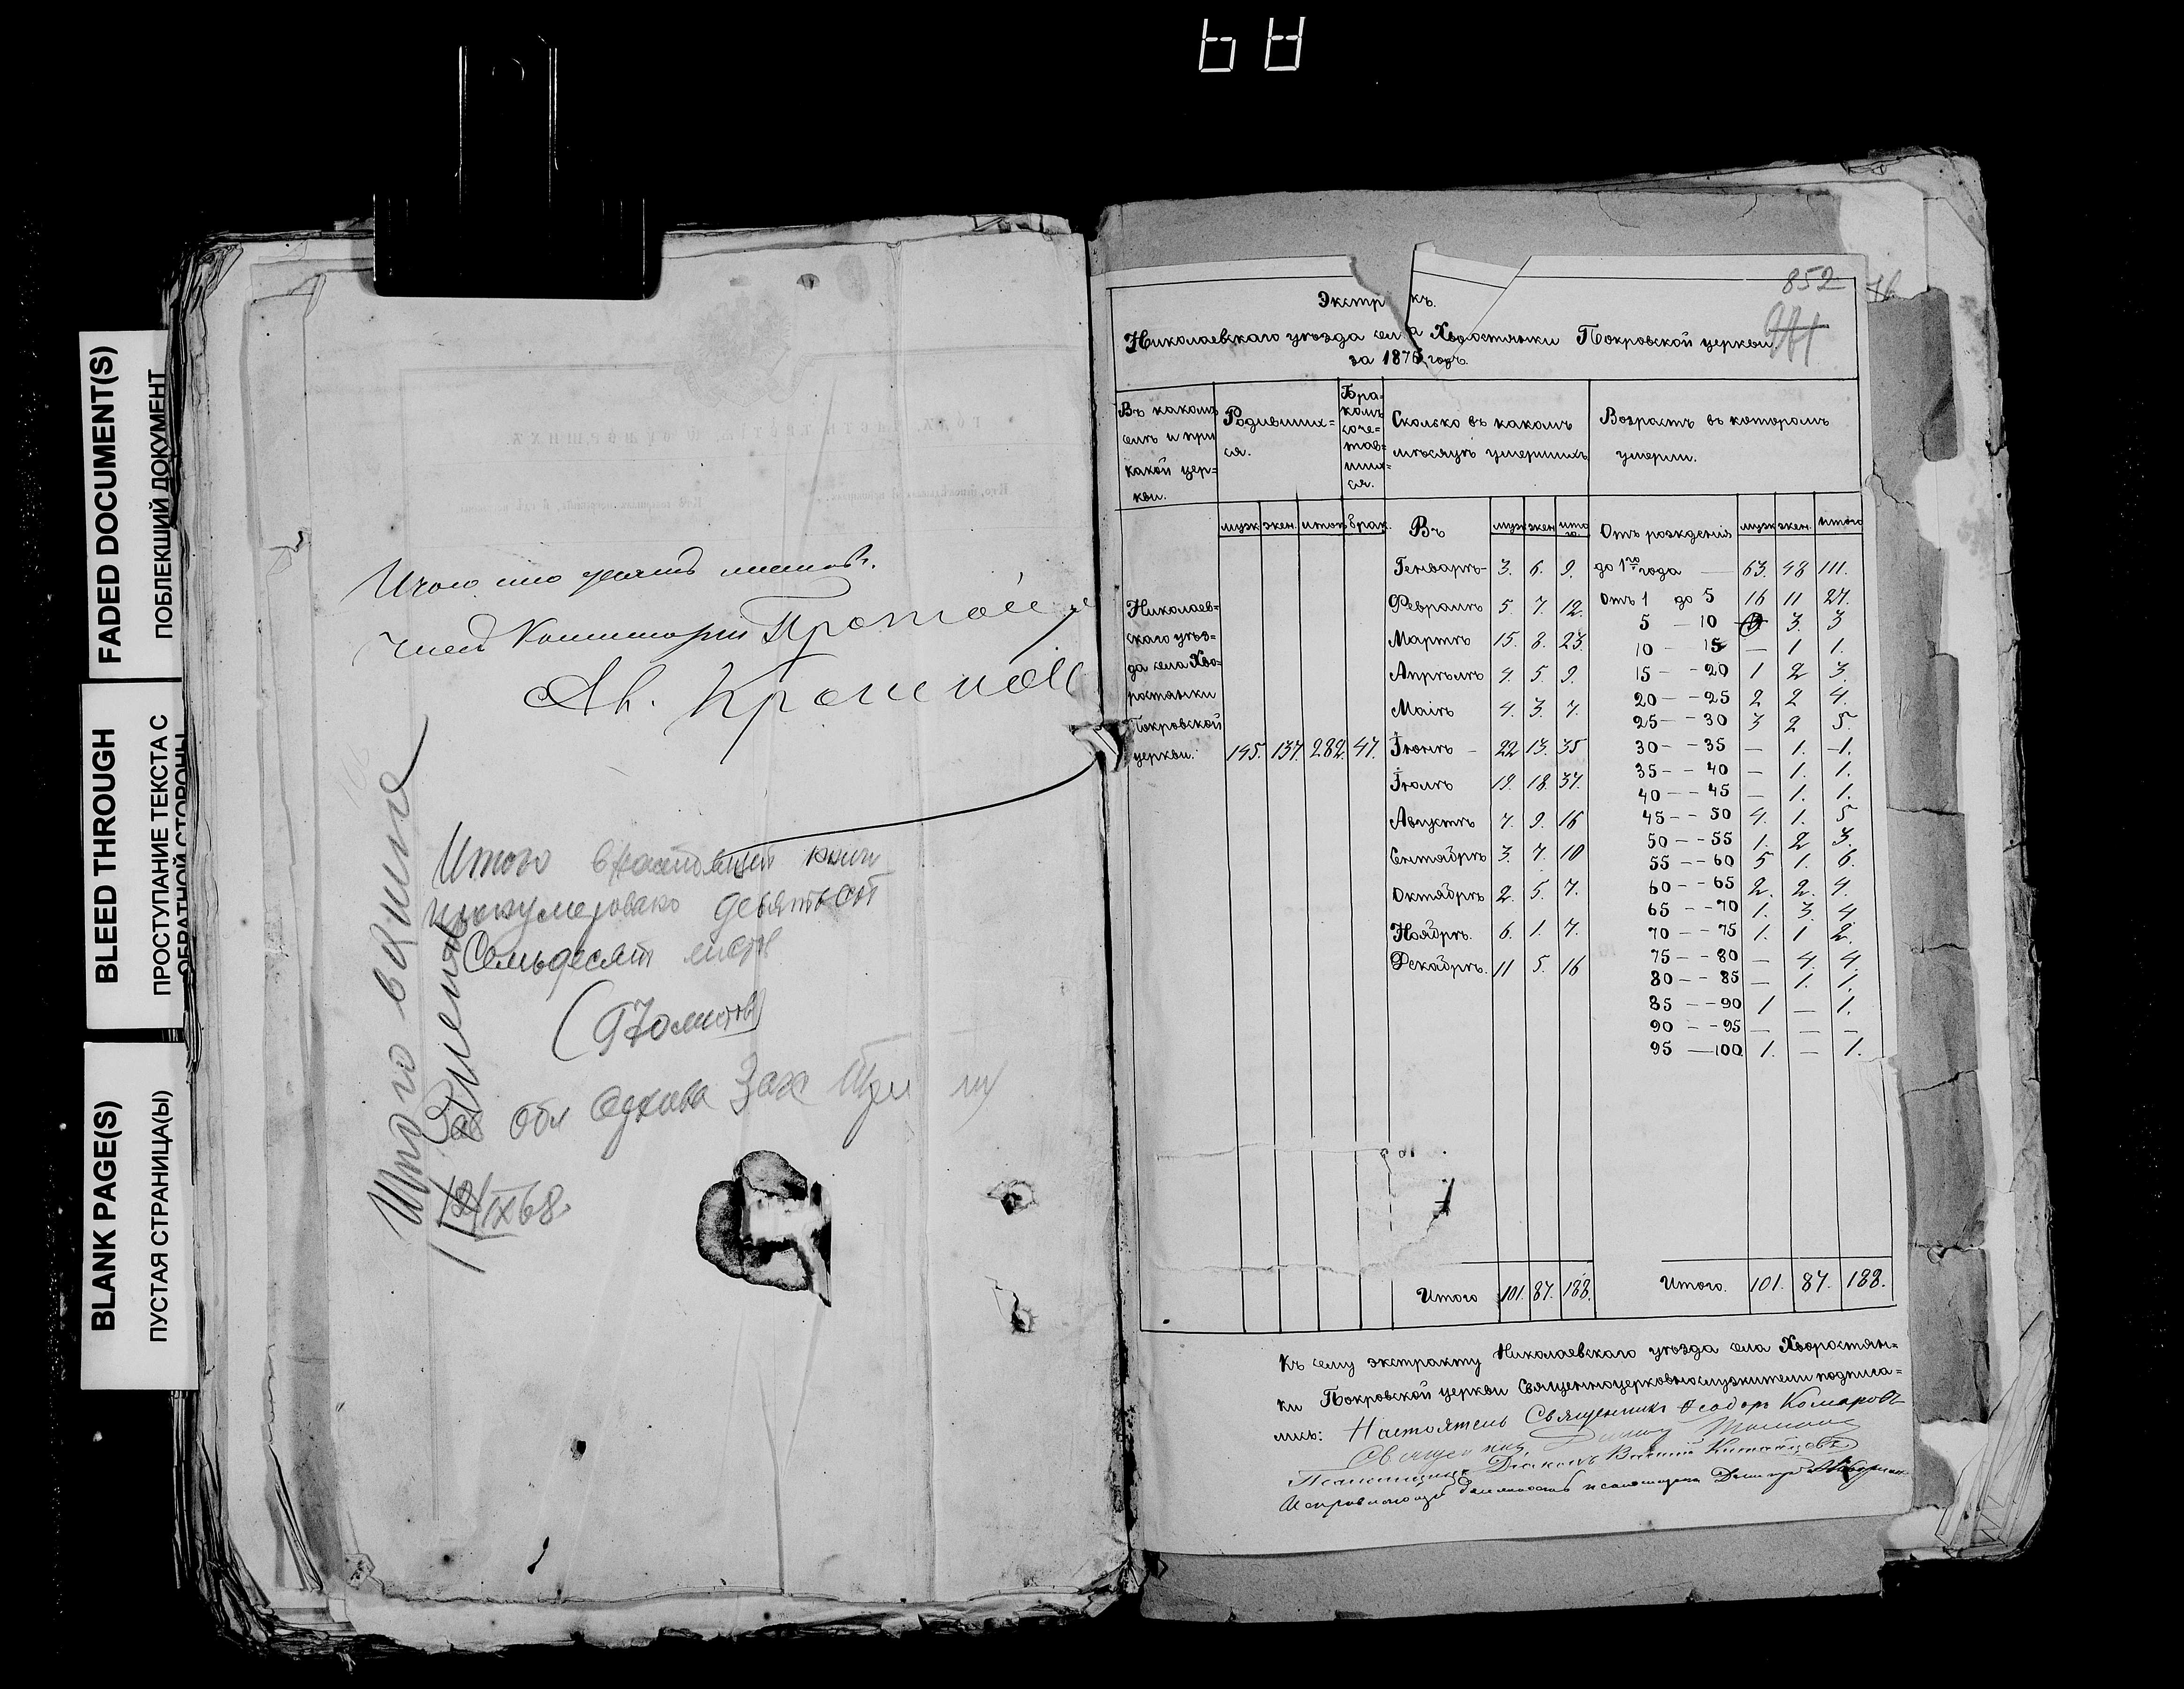 FADED DOCUMENT(S)
ПОБЛЕКШИЙ ДОКУМЕНТ
BLEED THROUGH
ПРОСТУПАНИЕ ТЕКСТА С
ОБРАТНОЙ СТОРОНЫ
BLANK PAGE(S)
ПУСТАЯ СТРАНИЦА(Ы)
Итого сто листовъ.
Членъ Консисторіи
Итого в настоящей книге
пронумеровано девятьсот
Семьдесят листов
(970 листов)
Зав обл архива
IX 68.
Итого в книге
852
Экстр къ.
Николаевскаго уѣзда села Хворостянки Покровской церкви.
за 187 годъ.
Въ какомъ селѣ и при какой церкви.
Родившихся.
Бракомъ сочетавшихся.
Сколько въ какомъ мѣсяцѣ умершихъ
Возрастъ въ которомъ умерли.
муж. жен. итого брак. Въ муж жен. итого Отъ рожденія муж жен. итого
Николаевскаго уѣзда села Хворостянки Покровской церкви. 145. 137. 282. 47.
Генварѣ 3. 6. 9. до 1го года 63. 48 111.
Февралѣ 5. 7. 12. Отъ 1 до 5 16 11 27.
5 — 10 3. 3
Мартѣ 15. 8. 23. 10 — 15 — 1 1.
Апрѣлѣ 4. 5. 9. 15 — 20 1 2 3.
20 — 25 2 2 4.
Маіѣ 4. 3. 7. 25 — 30 3 2 5.
Іюнѣ 22 13. 35 30 — 35 — 1. 1.
Іюлѣ 19. 18. 37. 35 — 40 — 1. 1.
40 — 45 — 1. 1.
Августѣ 7. 9. 16 45 — 50 4. 1. 5
50 — 55 1. 2 3.
Сентябрѣ 3. 7. 10 55 — 60 5 1. 6.
Октябрѣ 2. 5. 7. 60 — 65 2. 2. 4.
65 — 70 1. 3. 4
Ноябрѣ. 6. 1. 7. 70 — 75 1. 1 2.
Декабрѣ. 11 5. 16 75 — 80 — 4. 4.
80 — 85 — 1. 1.
85 — 90 1 — 1.
90 — 95 — — —
95 — 100 1. — 1.
Итого 101. 87. 188. Итого. 101. 87. 188.
Къ сему экстракту Николаевскаго уѣзда села Хворостян=
ки Покровской церкви Священноцерковнослужители подписа=
лись: Настоятель Священникъ Ѳеодоръ Комаровъ
Священникъ
Псаломщикъ Діаконъ
Исправляющій должность псаломщика